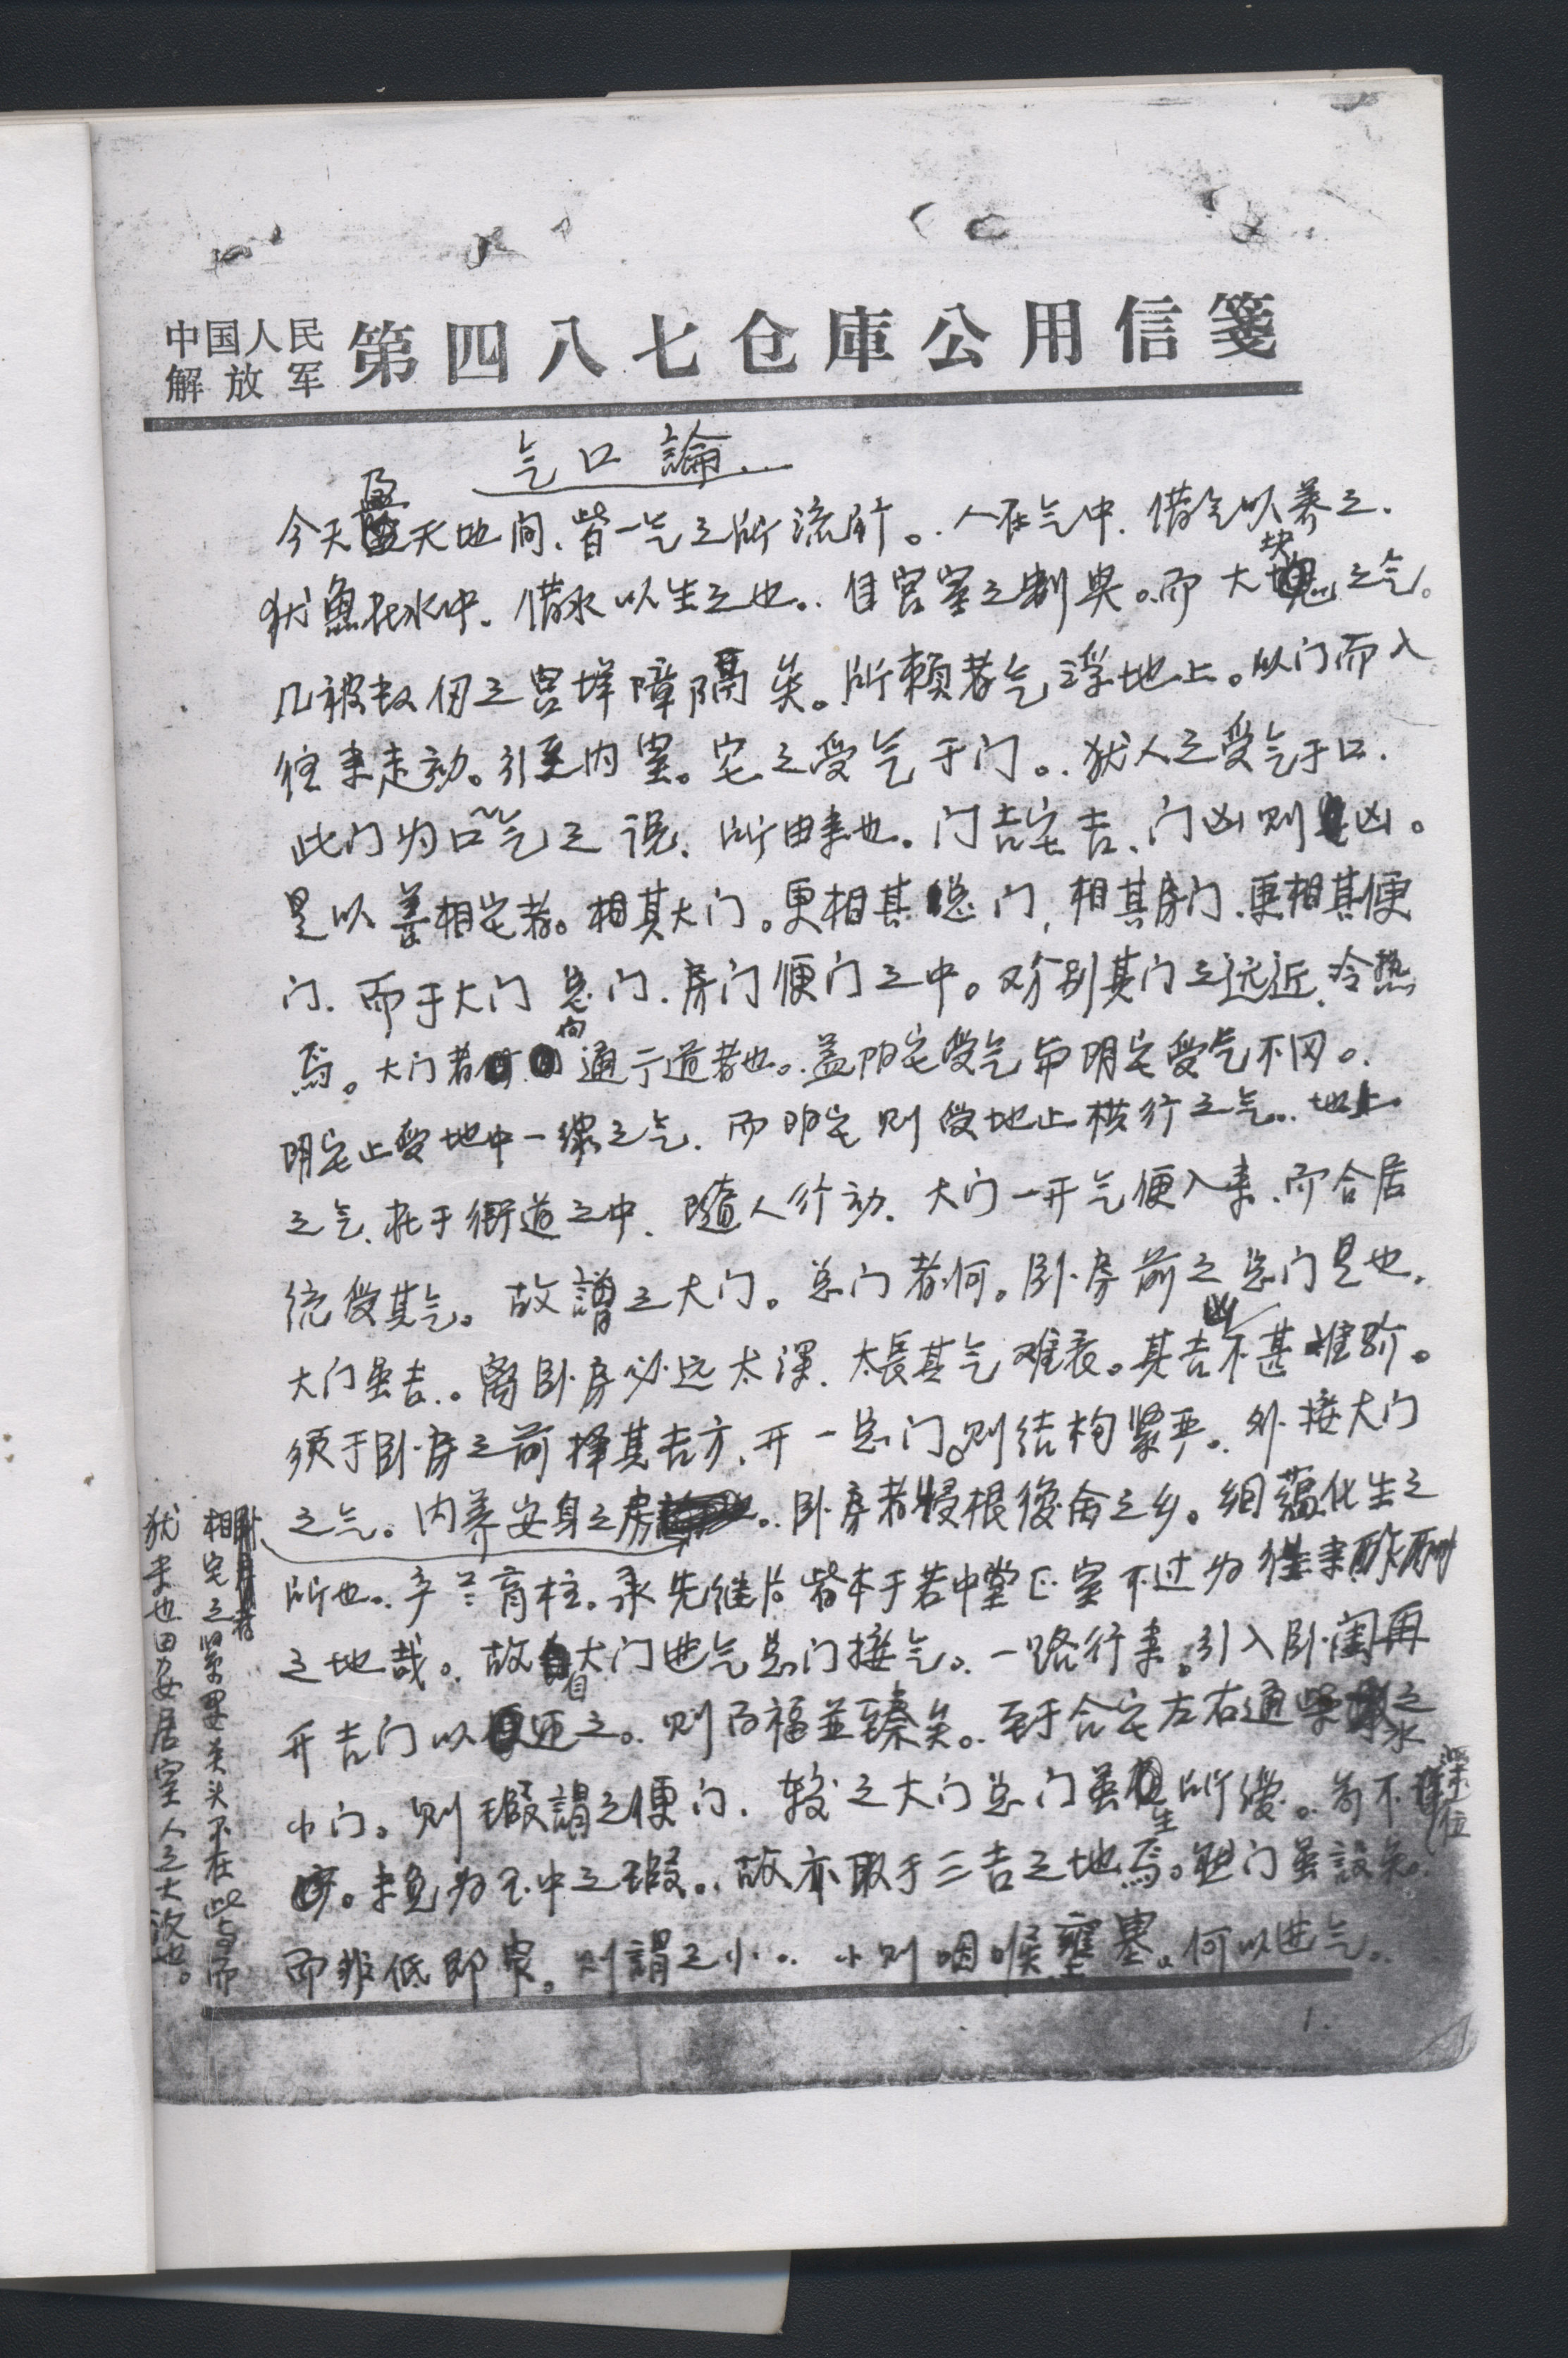 中国人民解放军 第四八七仓庫公用信箋
气口論
今天盈天地间、皆一气之所流行。人在气中、借气以养之、
犹魚在水中、借水以生之也。自宫室之制兴。而大块之气。
几被数仞之宫墙障隔矣。所赖者气浮地上。从门而入
往来走动。引至内室。宅之受气于门。犹人之受气于口.
此门为口气之说、所由来也。门吉宅吉、门凶则凶。
是以善相宅者。相其大门。更相其总门,相其房门、更相其便
门、而于大门总门、房门便门之中。又分别其门之远近、冷热
焉。大门者向通行道者也。盖阳宅受气与阴宅受气不同。
阴宅止受地中一缐之气、而阳宅则受地上横行之气。地上
之气、在于街道之中、随人行动、大门一开气便入来、而合居
统受其气。故謂之大门。总门者何。卧房前之总门是也。
大门虽吉。离卧房必远太深、太長其气难衰。其吉凶不甚准验。
须于卧房之前择其吉方、开一总门。则结构紧严。外接大门
之气。内养安身之房。卧房者根後之乡。细蕴化生之
所也。育桂。承先继后皆本于若中堂正室不过为往来酢酬
之地哉。故自大门进气总门接气。一路行来。引入卧闺再
开吉门以迎之。则百福並臻矣。至于合宅左右通柴水之
小门。则瑕謂之便门、较之大门总门虽所缓。苟不深位
。未免为玉中之瑕。故亦取于三吉之地焉。生门虽設矣。
而非低即窄。则謂之小。小则咽喉壅塞。何以进气。
相宅之紧要关头不在此与而
犹未也田安居室人之大次也。
1.